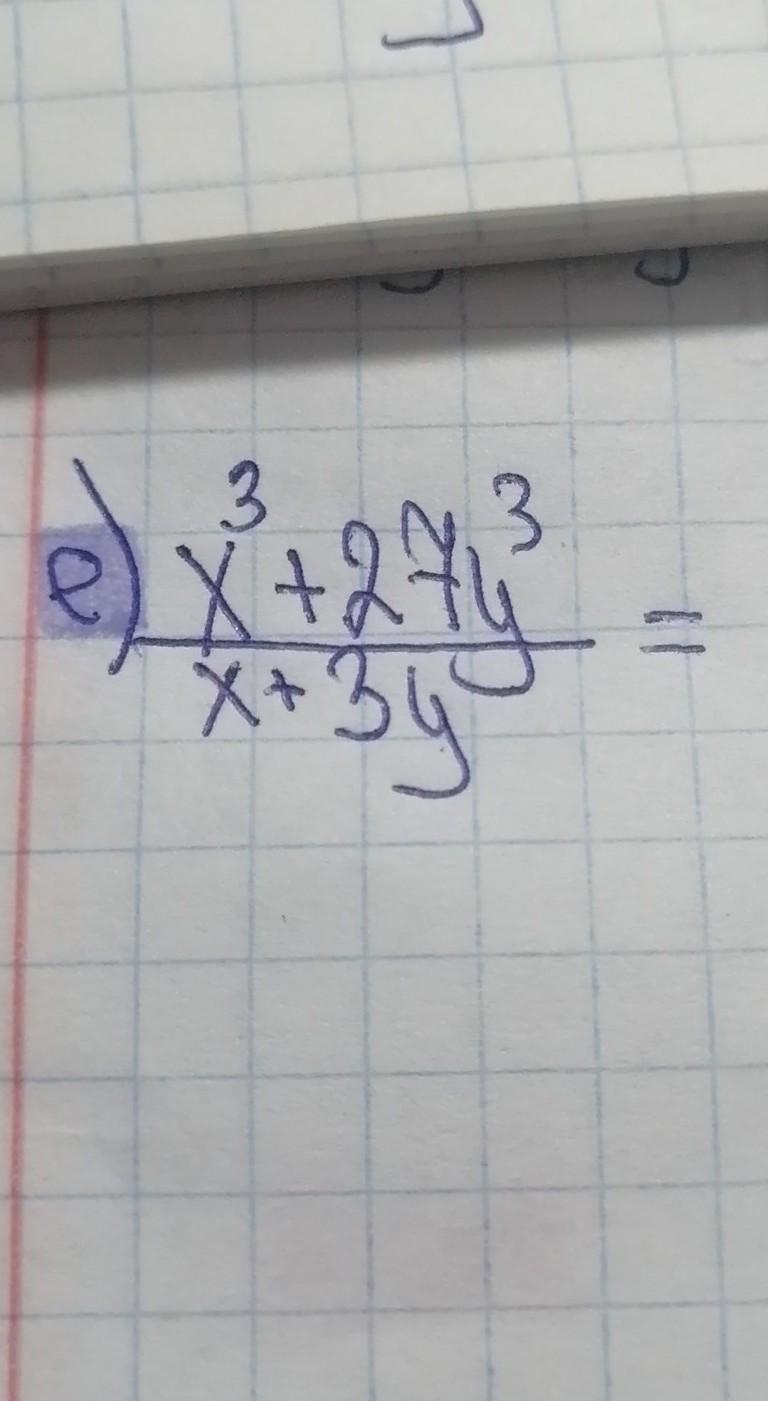 е) x³+27y³
x+3y =